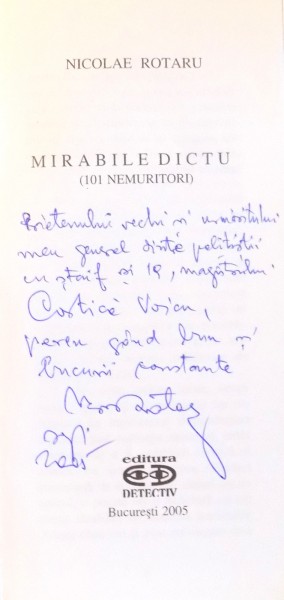 NICOLAE ROTARU
MIRABILE DICTU
(101 NEMURITORI)
Prietenului vechi și
meu general dintre polițiștii
cu ștaif și IQ, magistrului
Costică Voicu,
gând bun și
bucurii constante
2005
editura
DETECTIV
București 2005